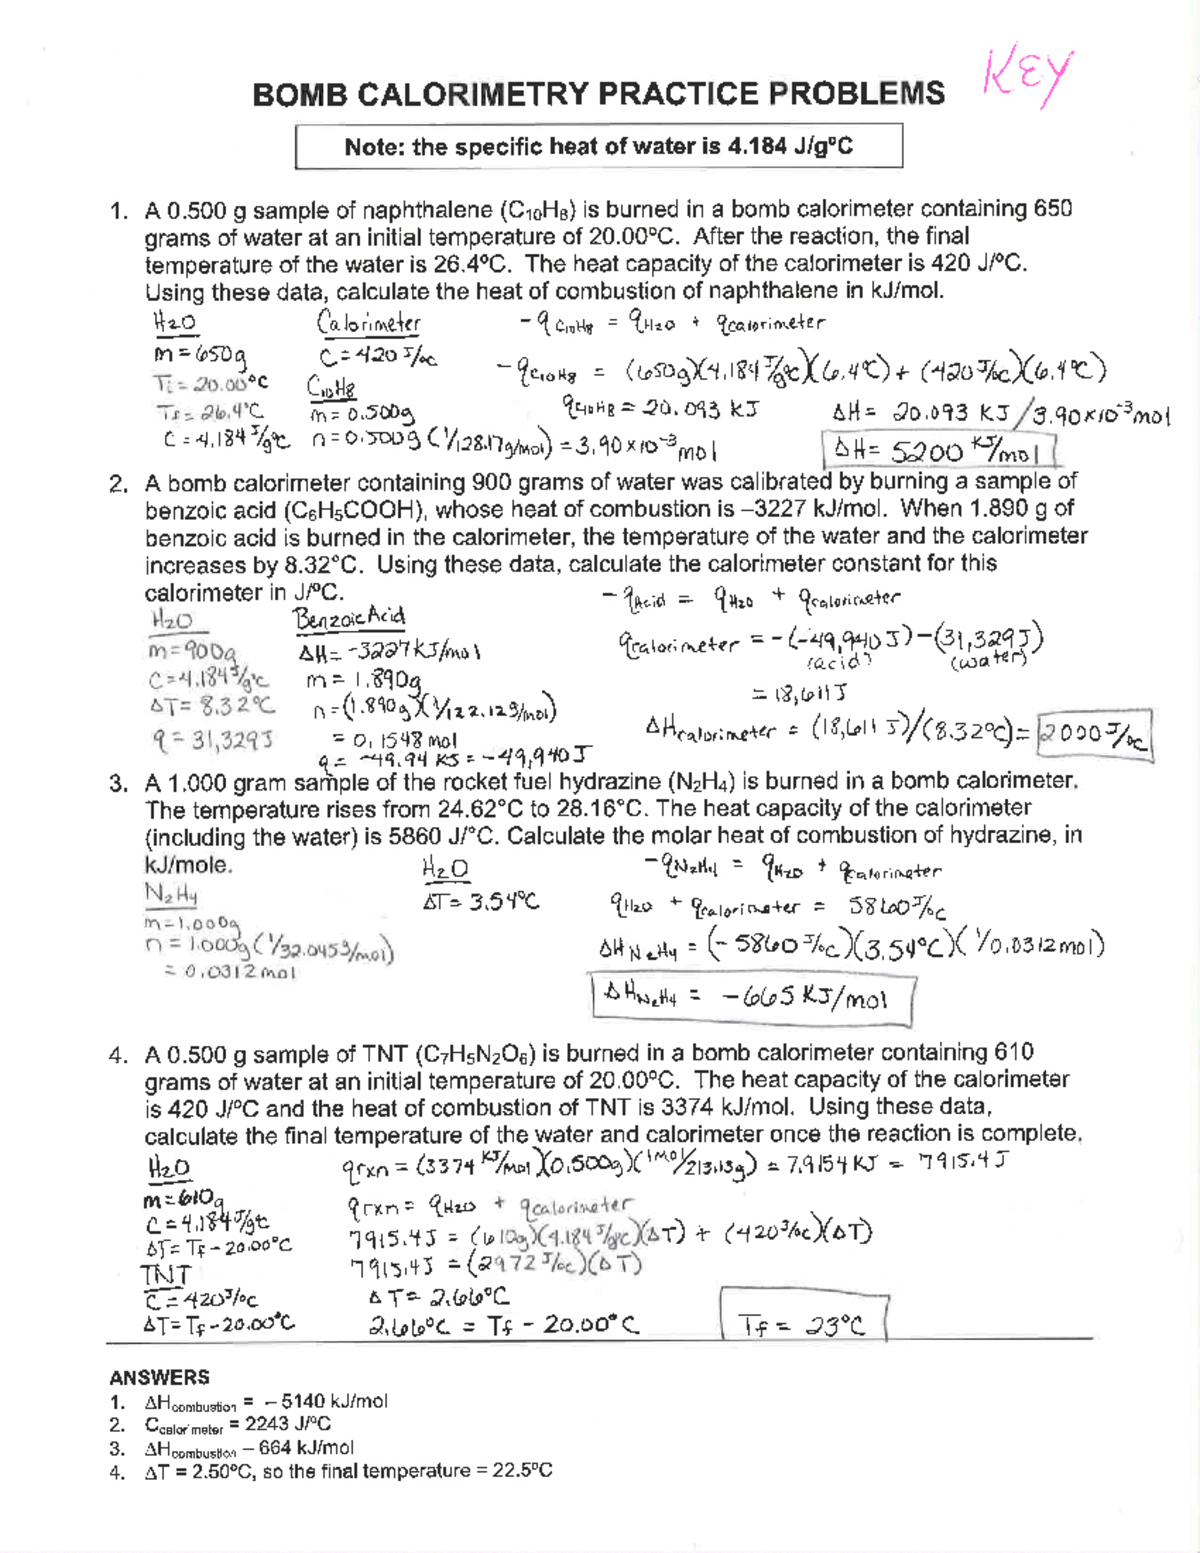 KEY
BOMB CALORIMETRY PRACTICE PROBLEMS
Note: the specific heat of water is 4.184 J/gºC
1. A 0.500 g sample of naphthalene (C₁₀H₈) is burned in a bomb calorimeter containing 650
grams of water at an initial temperature of 20.00ºC. After the reaction, the final
temperature of the water is 26.4ºC. The heat capacity of the calorimeter is 420 J/ºC.
Using these data, calculate the heat of combustion of naphthalene in kJ/mol.
H₂O Calorimeter -q C₁₀H₈ = q H₂O + q calorimeter
m = 650g C = 420 J/°C -q C₁₀H₈ = (650g)(4.184 J/g°C)(6.4°C) + (420 J/°C)(6.4°C)
Ti = 20.00°C C₁₀H₈
Tf = 26.4°C m = 0.500g q C₁₀H₈ = 20.093 KJ ΔH = 20.093 KJ / 3.90x10⁻³ mol
C = 4.184 J/g°C n = 0.500g (1/128.17g/mol) = 3.90x10⁻³ mol ΔH = 5200 KJ/mol
2. A bomb calorimeter containing 900 grams of water was calibrated by burning a sample of
benzoic acid (C₆H₅COOH), whose heat of combustion is –3227 kJ/mol. When 1.890 g of
benzoic acid is burned in the calorimeter, the temperature of the water and the calorimeter
increases by 8.32ºC. Using these data, calculate the calorimeter constant for this
calorimeter in J/ºC. -q Acid = q H₂O + q calorimeter
H₂O Benzoic Acid
m = 900g ΔH = -3227 KJ/mol q calorimeter = -(-49,940 J) - (31,329 J)
(acid) (water)
C = 4.184 J/g°C m = 1.890g = 18,611 J
ΔT = 8.32°C n = (1.890g)(1/122.123/mol) ΔH calorimeter = (18,611 J)/(8.32°C) = 2000 J/°C
q = 31,329J = 0.1548 mol
q = -49.94 KJ = -49,940 J
3. A 1.000 gram sample of the rocket fuel hydrazine (N₂H₄) is burned in a bomb calorimeter.
The temperature rises from 24.62°C to 28.16°C. The heat capacity of the calorimeter
(including the water) is 5860 J/°C. Calculate the molar heat of combustion of hydrazine, in
kJ/mole. H₂O -q N₂H₄ = q H₂O + q calorimeter
N₂H₄ ΔT = 3.54°C q H₂O + q calorimeter = 5860 J/°C
m = 1.000g
n = 1.000g (1/32.0453/mol) ΔH N₂H₄ = (-5860 J/°C)(3.54°C)(1/0.0312 mol)
= 0.0312 mol
ΔH N₂H₄ = -665 KJ/mol
4. A 0.500 g sample of TNT (C₇H₅N₂O₆) is burned in a bomb calorimeter containing 610
grams of water at an initial temperature of 20.00ºC. The heat capacity of the calorimeter
is 420 J/ºC and the heat of combustion of TNT is 3374 kJ/mol. Using these data,
calculate the final temperature of the water and calorimeter once the reaction is complete.
H₂O q rxn = (3374 KJ/mol)(0.500g)(1mol/213.13g) = 7.9154 KJ = 7915.4 J
m = 610g q rxn = q H₂O + q calorimeter
C = 4.184 J/g°C 7915.4 J = (610g)(4.184 J/g°C)(ΔT) + (420 J/°C)(ΔT)
ΔT = Tf - 20.00°C 7915.4J = (2972 J/°C)(ΔT)
TNT
C = 420 J/°C ΔT = 2.66°C
ΔT = Tf - 20.00°C 2.66°C = Tf - 20.00°C Tf = 23°C
ANSWERS
1. ΔHcombustion = – 5140 kJ/mol
2. Ccalorimeter = 2243 J/ºC
3. ΔHcombustion – 664 kJ/mol
4. ΔT = 2.50ºC, so the final temperature = 22.5ºC